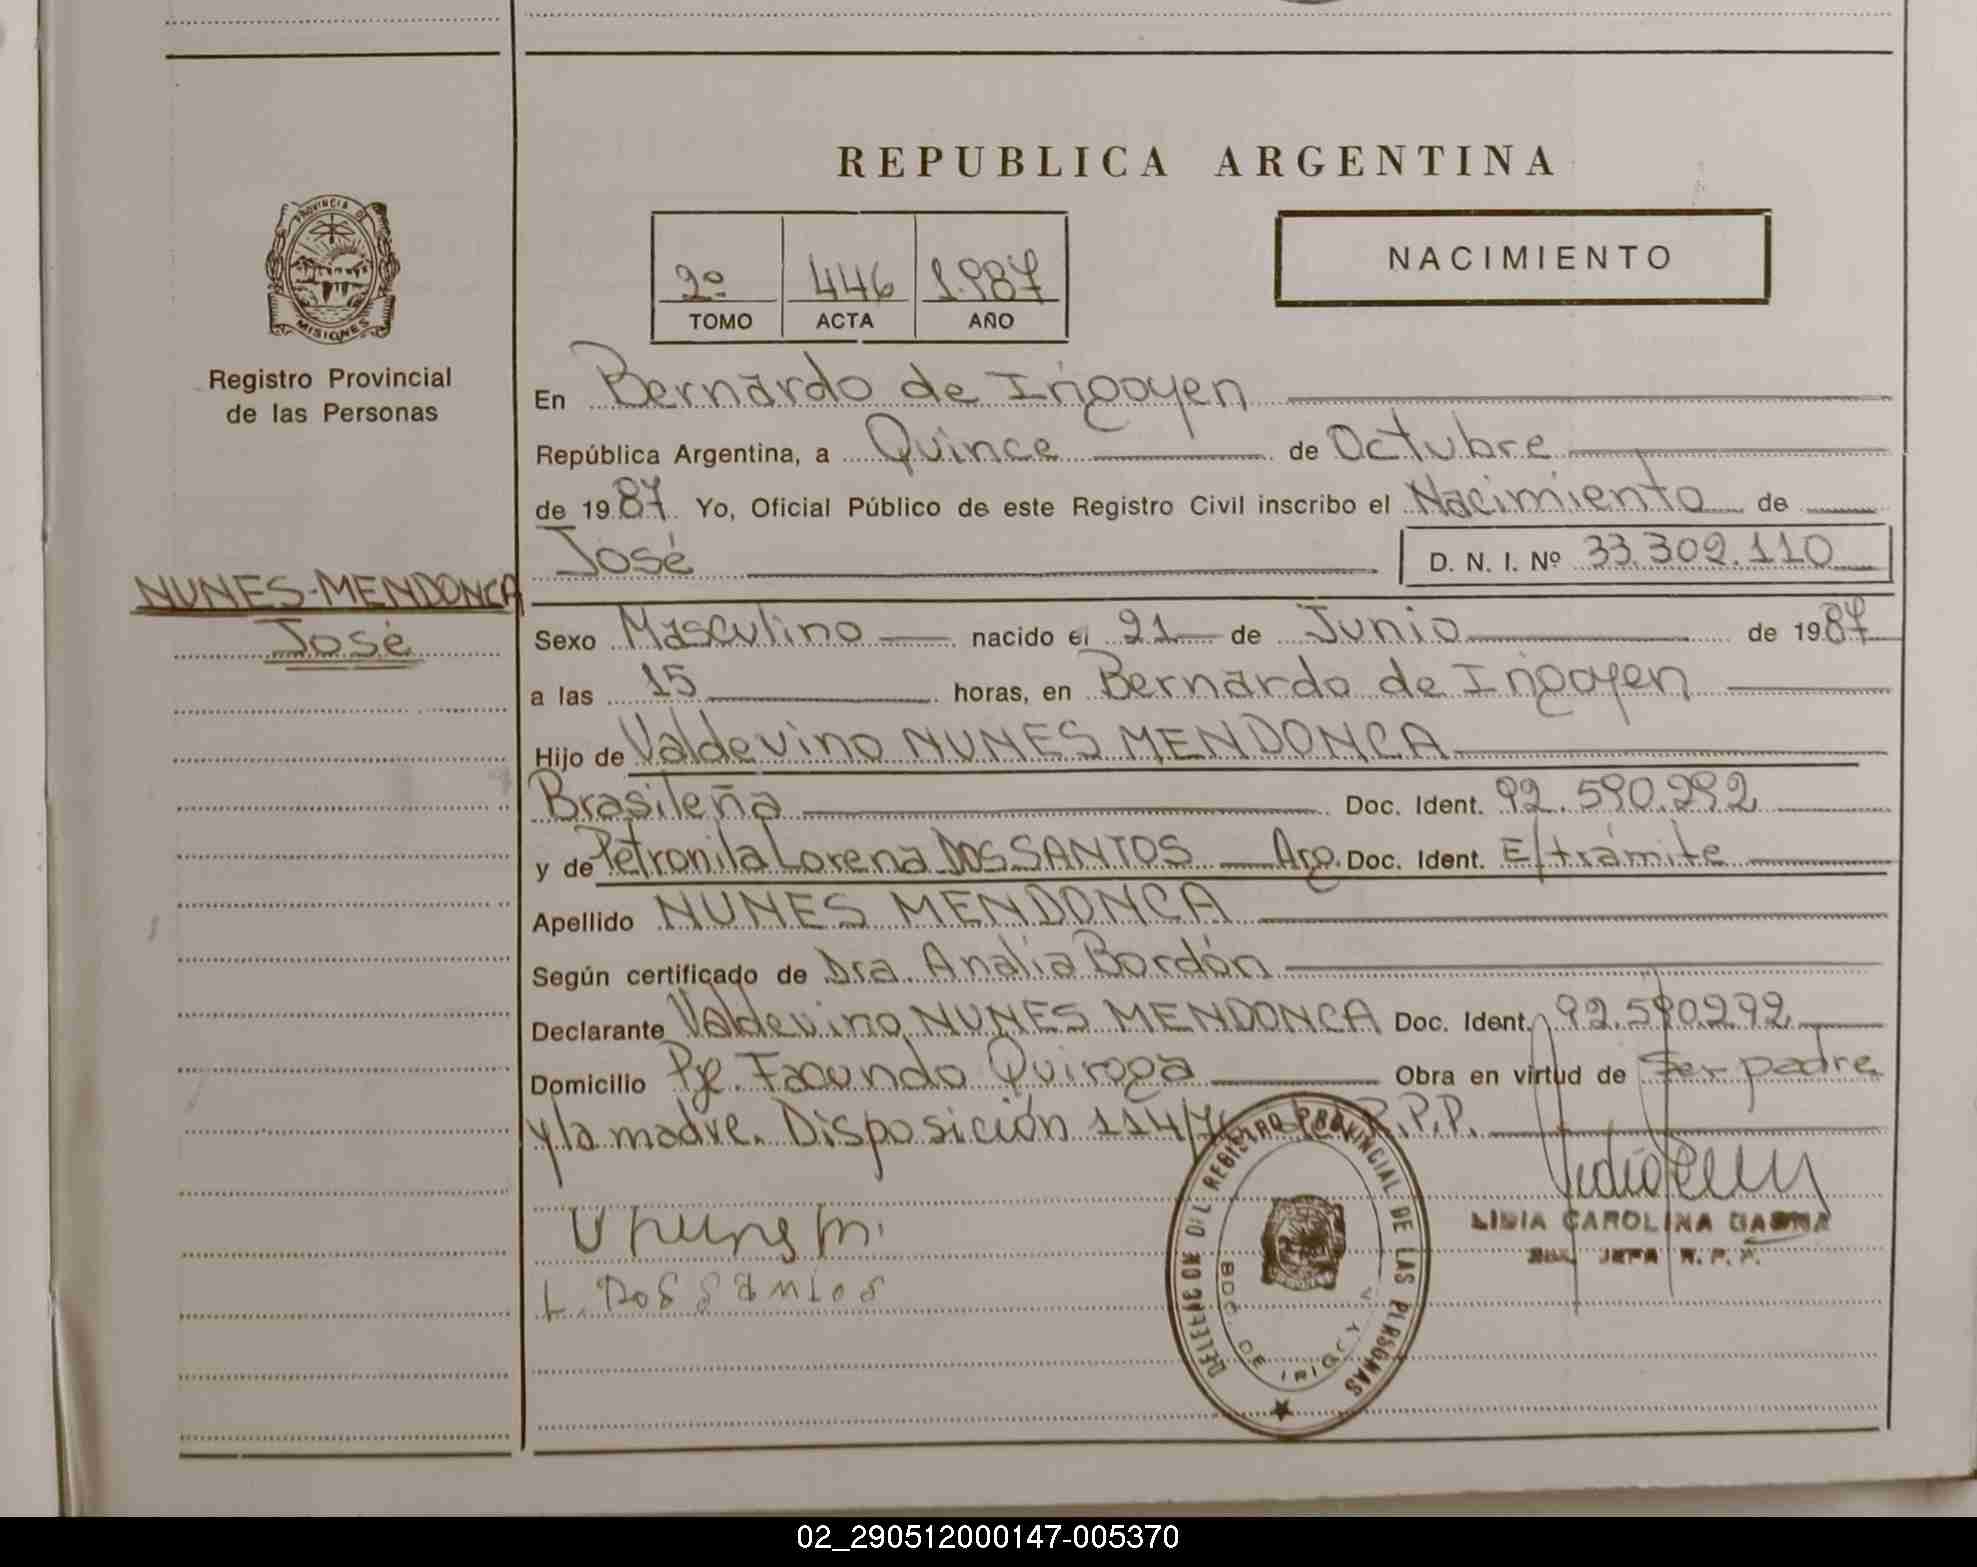 REPUBLICA ARGENTINA
PROVINCIA DE
MISIONES
Registro Provincial
de las Personas
2º 446 1.987
TOMO ACTA AÑO
NACIMIENTO
En Bernardo de Irigoyen
República Argentina, a Quince de Octubre
de 1987 Yo, Oficial Público de este Registro Civil inscribo el Nacimiento de
José D. N. I. Nº 33.302.110
NUNES-MENDONCA
José
Sexo Masculino nacido el 21 de Junio de 1987
a las 15 horas, en Bernardo de Irigoyen
Hijo de Valdevino NUNES MENDONCA
Brasileña Doc. Ident. 92.590.292
y de Petronila Lorena DOS SANTOS Arg. Doc. Ident. E/trámite
Apellido NUNES MENDONCA
Según certificado de Dra. Analia Bordón
Declarante Valdevino NUNES MENDONCA Doc. Ident. 92.590.292
Domicilio Pje. Facundo Quiroga Obra en virtud de ser padre
y la madre. Disposición 114/ R.P.P.
L. DOS SANTOS
LIDIA CAROLINA
JEFA R. P. P.
DELEGACION DEL REGISTRO PROVINCIAL DE LAS PERSONAS
BDO. DE IRIGOYEN
02_290512000147-005370